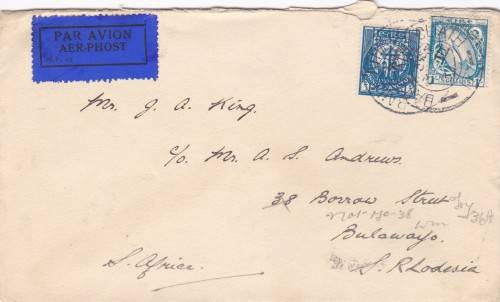 PAR AVION
AER-PHOST
Mr. J. A. King.
c/o Mr. A. S. Andrews.
38 Borrow Street
not no 38
Bulawayo.
S. Africa. S. Rhodesia